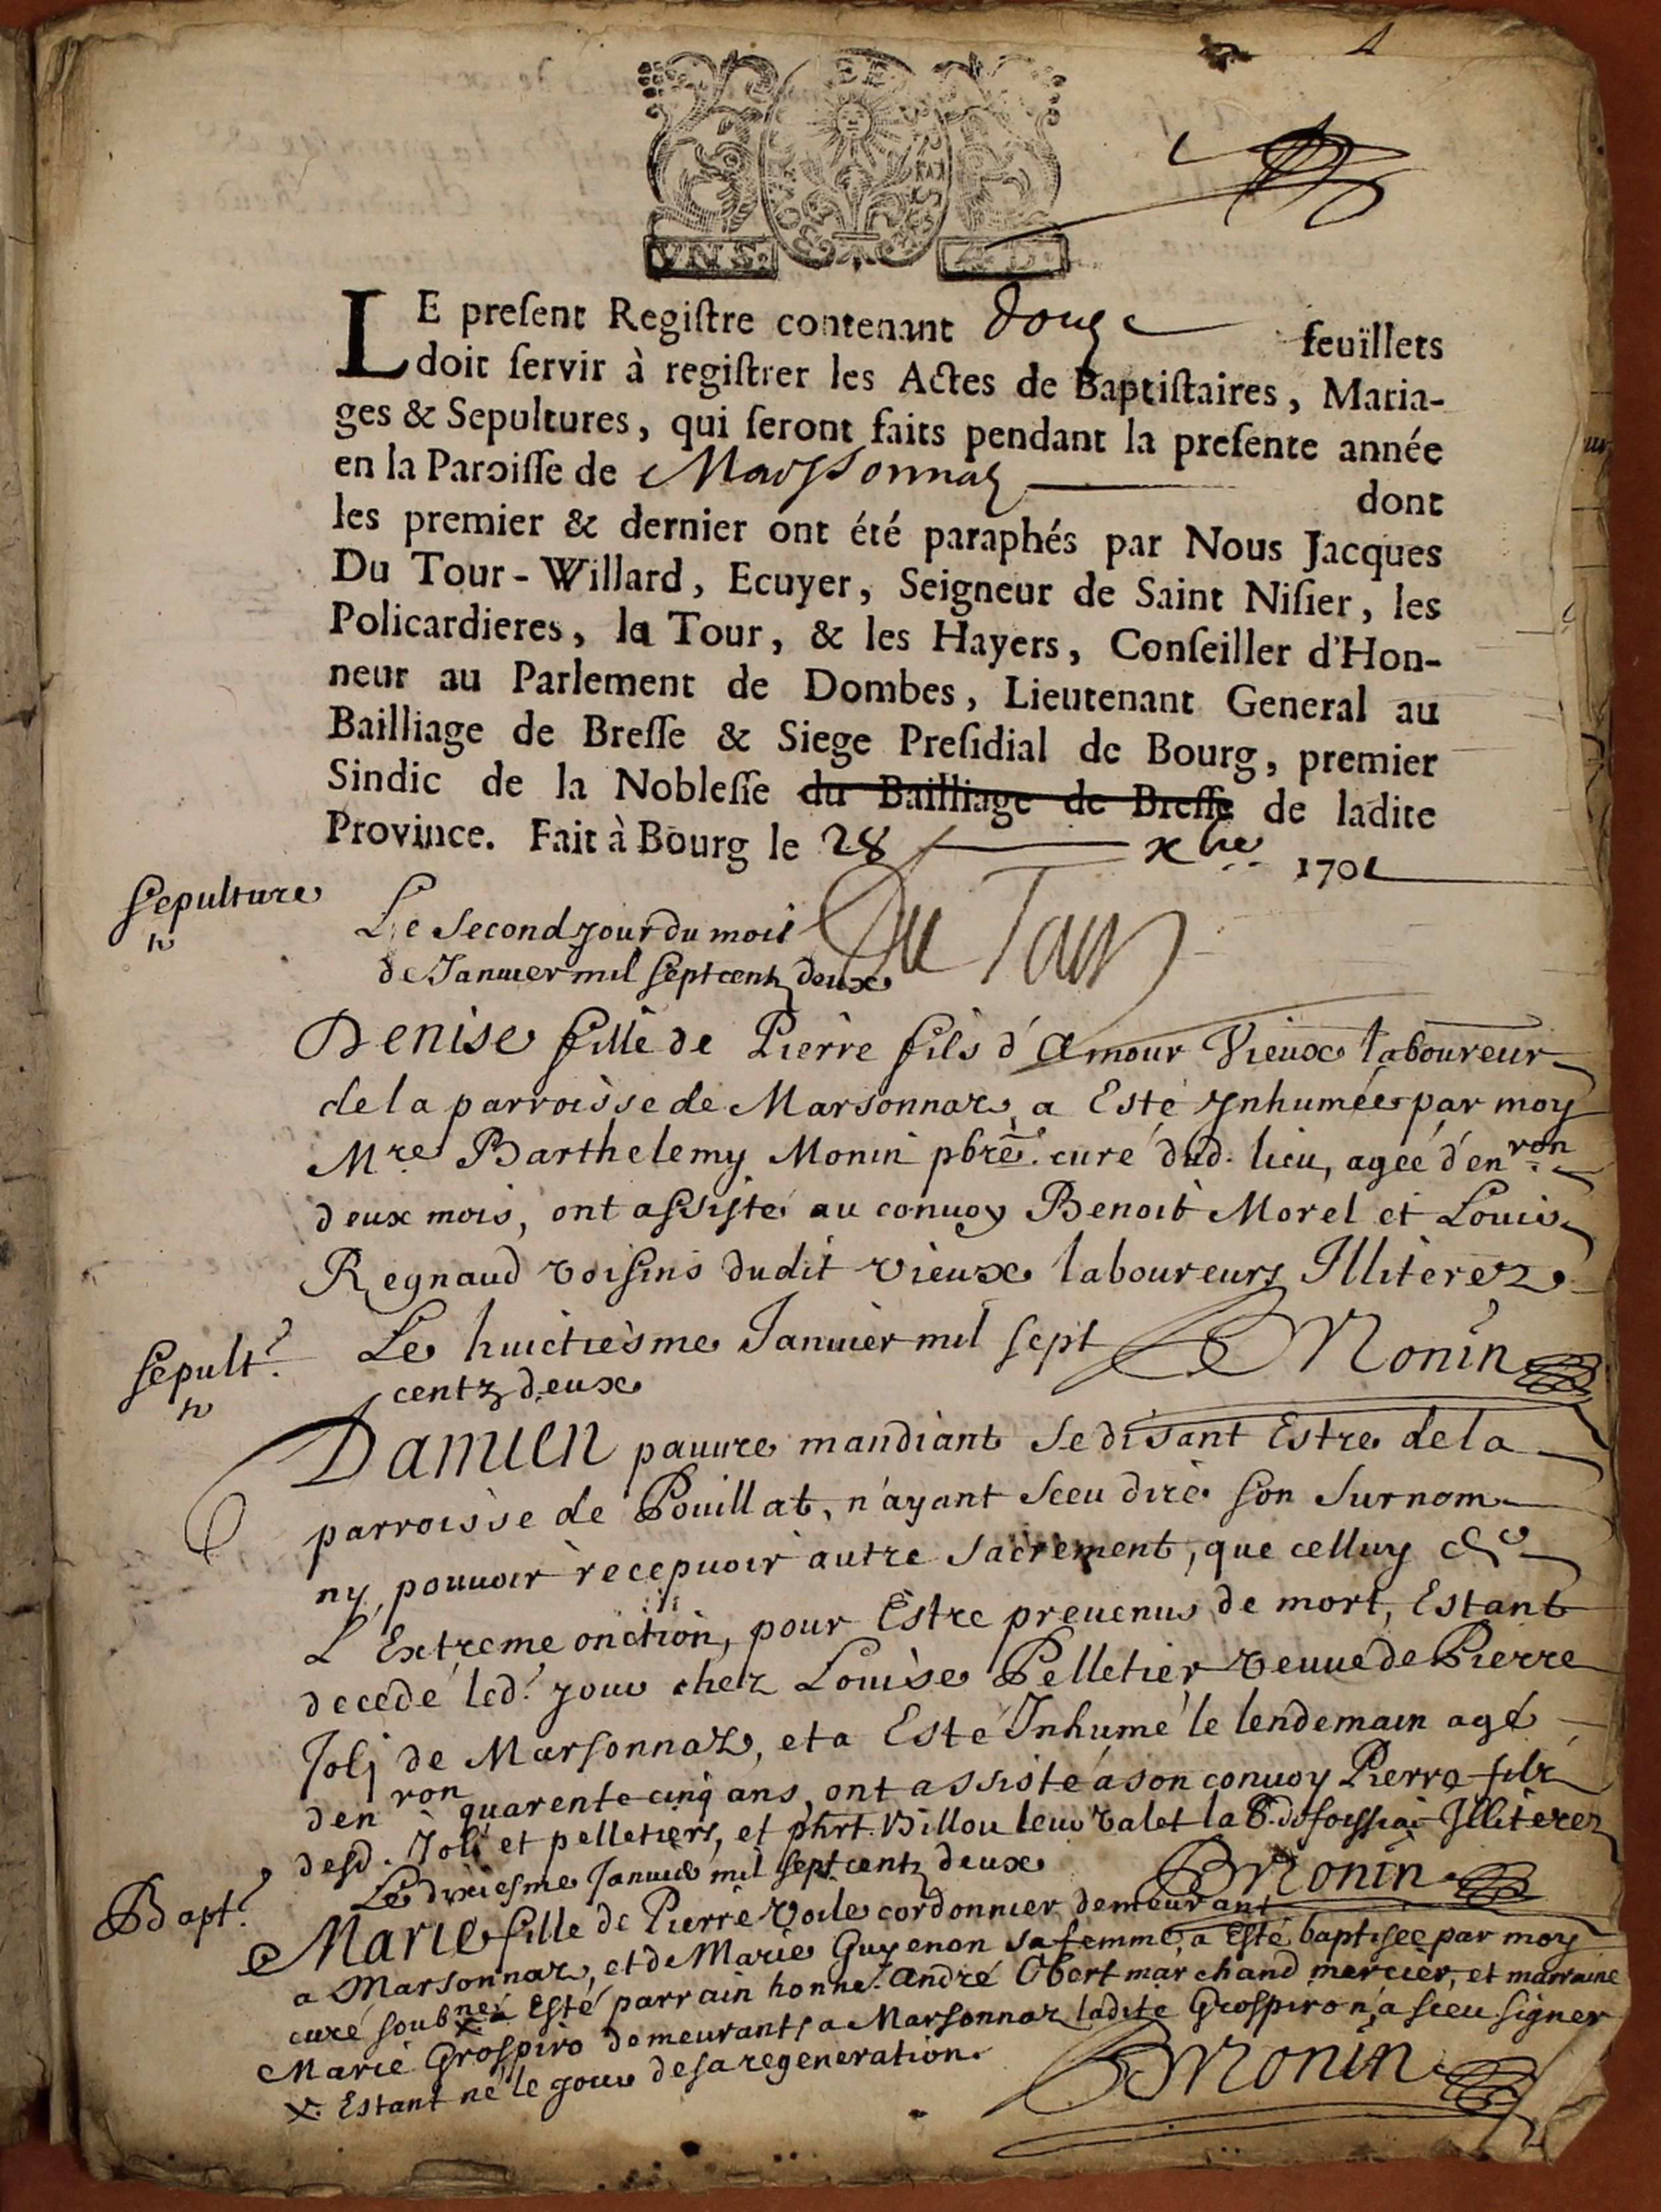 4
VN S.
4.D.
LE preſent Regiſtre contenant douze feuïllets
doit ſervir à regiſtrer les Actes de Baptiſtaires, Maria-
ges & Sepultures, qui ſeront faits pendant la preſente année
en la Paroiſſe de Marssonnaz dont
les premier & dernier ont été paraphés par Nous Jacques
Du Tour-Willard, Ecuyer, Seigneur de Saint Niſier, les
Policardieres, la Tour, & les Hayers, Conſeiller d'Hon-
neur au Parlement de Dombes, Lieutenant General au
Bailliage de Breſſe & Siege Preſidial de Bourg, premier
Sindic de la Nobleſſe du Bailliage de Breſſe de ladite
Province. Fait à Bourg le 28 xbre 1701
Sepulture
Le Second jour du mois
de Januier mil sept centz deux
Du Tour
Denise fille de Pierre fils d'Amour Vieux laboureur
de la parroisse de Marsonnaz, a Esté ynhumée par moy
Mre Barthelemy Monin pbrē. curé dud. lieu, agée d'enron
deux mois, ont assisté au conuoy Benoit Morel et Louis
Regnaud voisins dudit vieux laboureurs Illiterez
Sepult.
Le huictiesme Januier mil sept
centz deux
B Monin
Damien pauure mandiant Se disant Estre de la
parroisse de Pouillat, n'ayant sceu dire son Surnom
ny, pouuoir recepuoir autre Sacrement, que celluy de
L'Extreme onction, pour Estre preuenu de mort, Estant
decedé led. jour chez Louise Pelletier veuue de Pierre
Joli de Marsonnaz, et a Esté Inhumé le lendemain agé
denron quarente cinq ans, ont assisté a son conuoy Pierre filz
desd. Joli et pelletiers, et phrt. Billou leur valet la Illiterez
Le dixiesme Januier mil sept centz deux
B Monin
Bapt.
Marie fille de Pierre Voile cordonnier demeurant
a Marsonnaz, et de Marie Guyenon sa femme, a Esté baptisée par moy
curé soubné x a Esté parrain honne. André Obert marchand mercier, et marraine
Marie Grospiro demeurants a Marsonnaz ladite Grospiro n'a sceu signer
x. Estant né le jour de sa regeneration.
B Monin